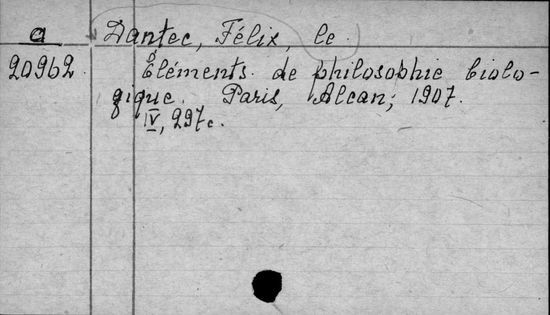 a Dantec, Félix, le
20962. Éléments de philosophie biolo-
gique. Paris, Alcan, 1907.
IV, 297c.